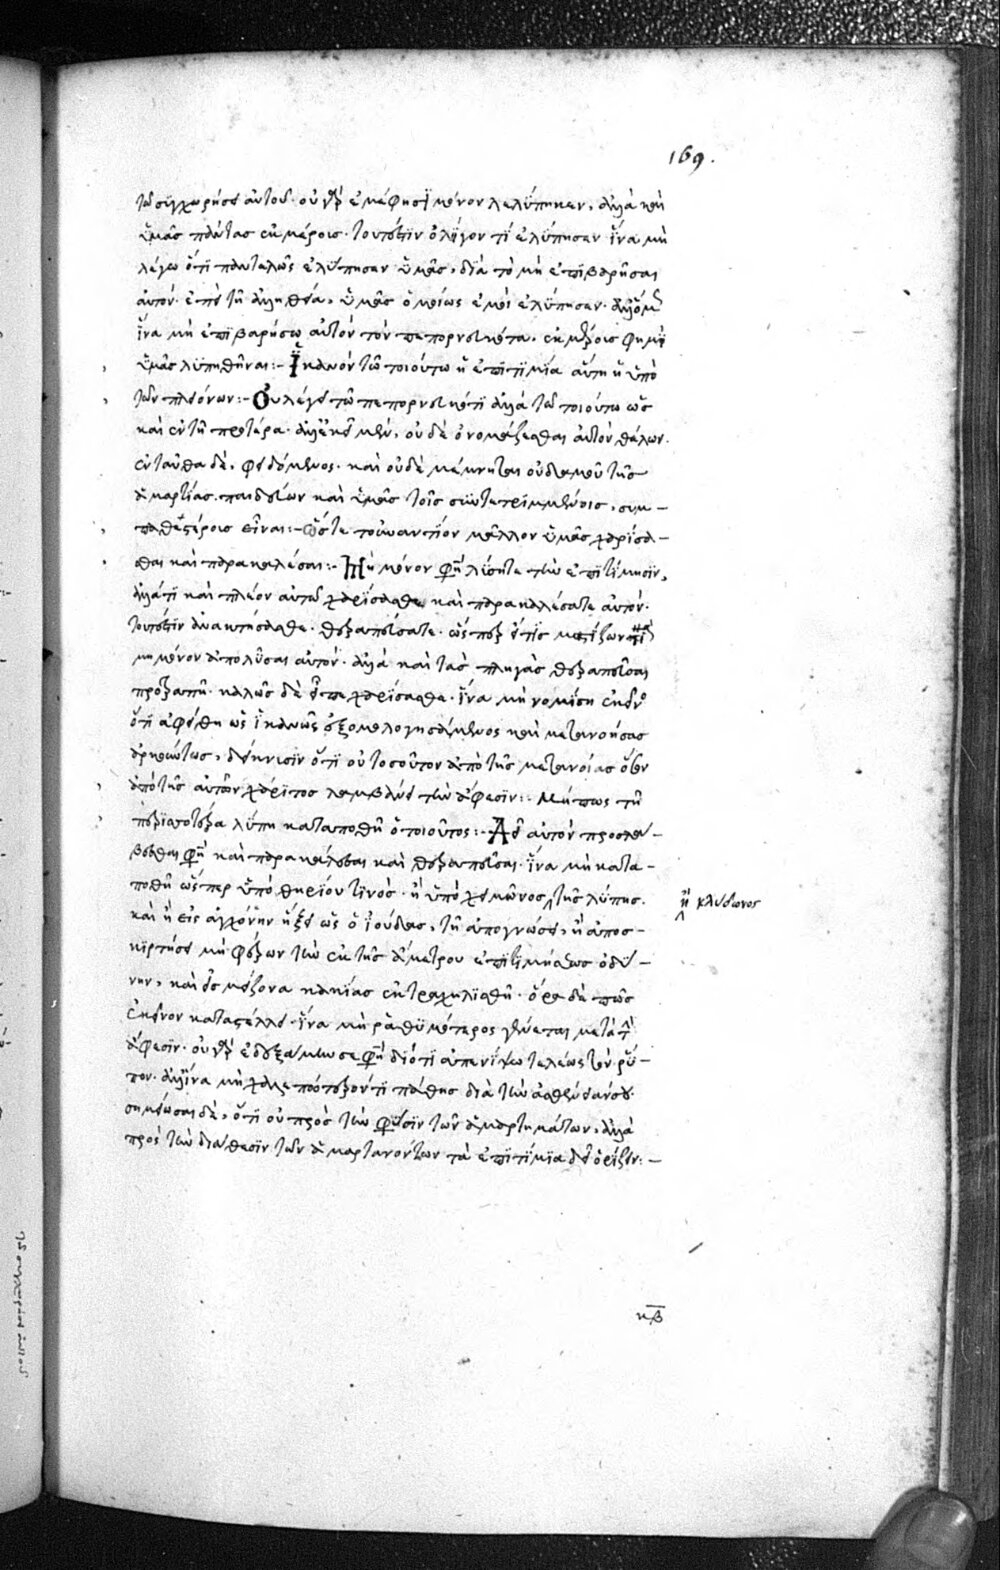 169.
τῶ συγχωρῆσαι αὐτού· οὐ γὰρ ἐμέ φησι μόνον λελύπηκεν, ἀλλὰ καὶ
ὑμᾶς πάντας ἐκ μέρους· τουτέστιν ὀλίγον τί ἐλύπησεν ἵνα μὴ
λέγω ὅτι παντελῶς ἐλύπησεν ὑμᾶς, διὰ τὸ μὴ ἐπιβαρῆσαι
αὐτόν· ἐπεὶ τῆ ἀληθεία, ὑμᾶς ὁμοίως ἐμοὶ ἐλύπησεν· ἀλλ' ὅμως
ἵνα μὴ ἐπιβαρήσω αὐτὸν τὸν πεπορνευκότα, ἐκ μέρους φημὶ
ὑμᾶς λυπηθῆναι:- Ἱκανὸν τῶ τοιούτω ἡ ἐπιτιμία αὕτη ἡ ὑπὸ
τῶν πλειόνων:- Οὐ λέγει τῶ πεπορνευκότι ἀλλὰ τῶ τοιούτω ὡς
καὶ ἐν τῆ προτέρα· ἀλλ' ἐκεῖ μὲν, οὐδὲ ὀνομάζεσθαι αὐτὸν θέλων·
ἐνταῦθα δὲ, φειδόμενος· καὶ οὐδὲ μέμνηται οὐδαμοῦ τῆς
ἁμαρτίας. παιδεύων καὶ ὑμᾶς τοῖς συντετριμμένοις, συμ-
παθεστέροις εἶναι:- Ὥστε τοὐναντίον μᾶλλον ὑμᾶς χαρίσα-
σθαι καὶ παρακαλέσαι:- Μὴ μόνον φησὶ λύσητε τὴν ἐπιτίμησιν,
ἀλλά τι καὶ πλέον αὐτῶ χαρίσασθε, καὶ παρακαλέσατε αὐτόν·
τουτέστιν ἀνακτήσασθε· θεραπεύσατε· ὥσπερ εἴ τις μαστίζων τινὰ
μὴ μόνον ἀπολῦσαι αὐτόν· ἀλλὰ καὶ τὰς πληγὰς θεραπεῦσαι
προτραπῆ· καλῶς δὲ εἶπε χαρίσασθε· ἵνα μὴ νομίση ἐκεῖνος
ὅτι ἀφείθη ὡς ἱκανῶς ἐξομολογησάμενος καὶ μετανοήσας
ἀρκούντως, δείκνυσιν ὅτι οὐ τοσοῦτον ἀπὸ τῆς μετανοίας ὅσον
ἀπὸ τῆς αὐτῶν χάριτος λαμβάνει τὴν ἄφεσιν:- Μήπως τῆ
περισσοτέρα λύπη καταποθῆ ὁ τοιοῦτος:- Δεῖ αὐτὸν προσλα-
βέσθαι φησὶ καὶ παρακαλέσαι καὶ θεραπεῦσαι· ἵνα μὴ κατα-
ποθῆ ὥσπερ ὑπὸ θηρίου τινὸς· ἢ ὑπὸ χειμῶνος τῆς λύπης.
ἢ κλύδωνος
καὶ ἢ εἰς ἀγχόνην ἥξει ὡς ὁ ἰούδας, τῆ ἀπογνώσει, ἢ ἀπος-
κιρτήσει μὴ φέρων τὴν ἐκ τῆς ἀμέτρου ἐπιτιμήσεως ὀδύ-
νην, καὶ εἰς μείζονα κακίας ἐκτραχηλισθῆ· ὅρα δὲ πῶς
ἐκεῖνον καταστέλλει· ἵνα μὴ ῥαθυμότερος γένηται μετὰ τὴν
ἄφεσιν· οὐ γὰρ ἐδεξάμην σε φησὶ διότι ἀπενίψω τελέως τὸν ῥύ-
πον· ἀλλ' ἵνα μὴ χαλεπώτερόν τι πάθης διὰ τὴν ἀσθένειάν σου·
σημείωσαι δὲ, ὅτι οὐ πρὸς τὴν φύσιν τῶν ἁμαρτημάτων, ἀλλὰ
πρὸς τὴν διάθεσιν τῶν ἁμαρτανόντων τὰ ἐπιτίμια δεῖ ὁρίζειν:-
κβ